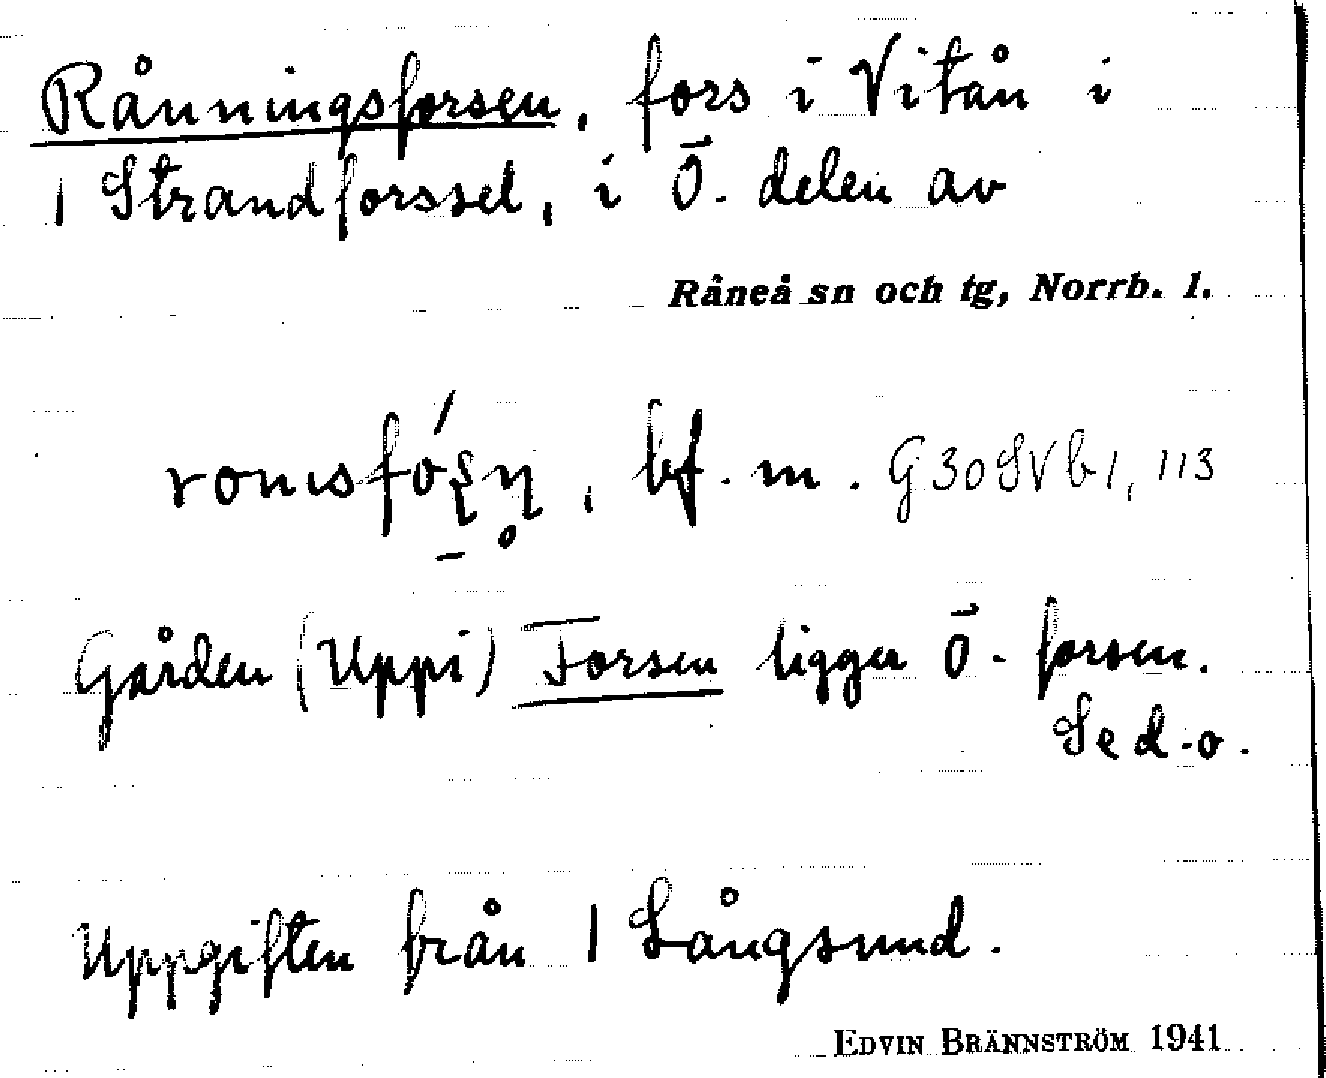 Rånningsforsen, fors i Vitån i
| Strandforssel, i Ö. delen av
Råneå sn och tg, Norrb. l.
bf. m. G30SVb1, 113
Gården (Uppi) Forsen ligger Ö. forsen.
Se d.o.
Uppgiften från | Långsund.
EDVIN BRÄNNSTRÖM 1941